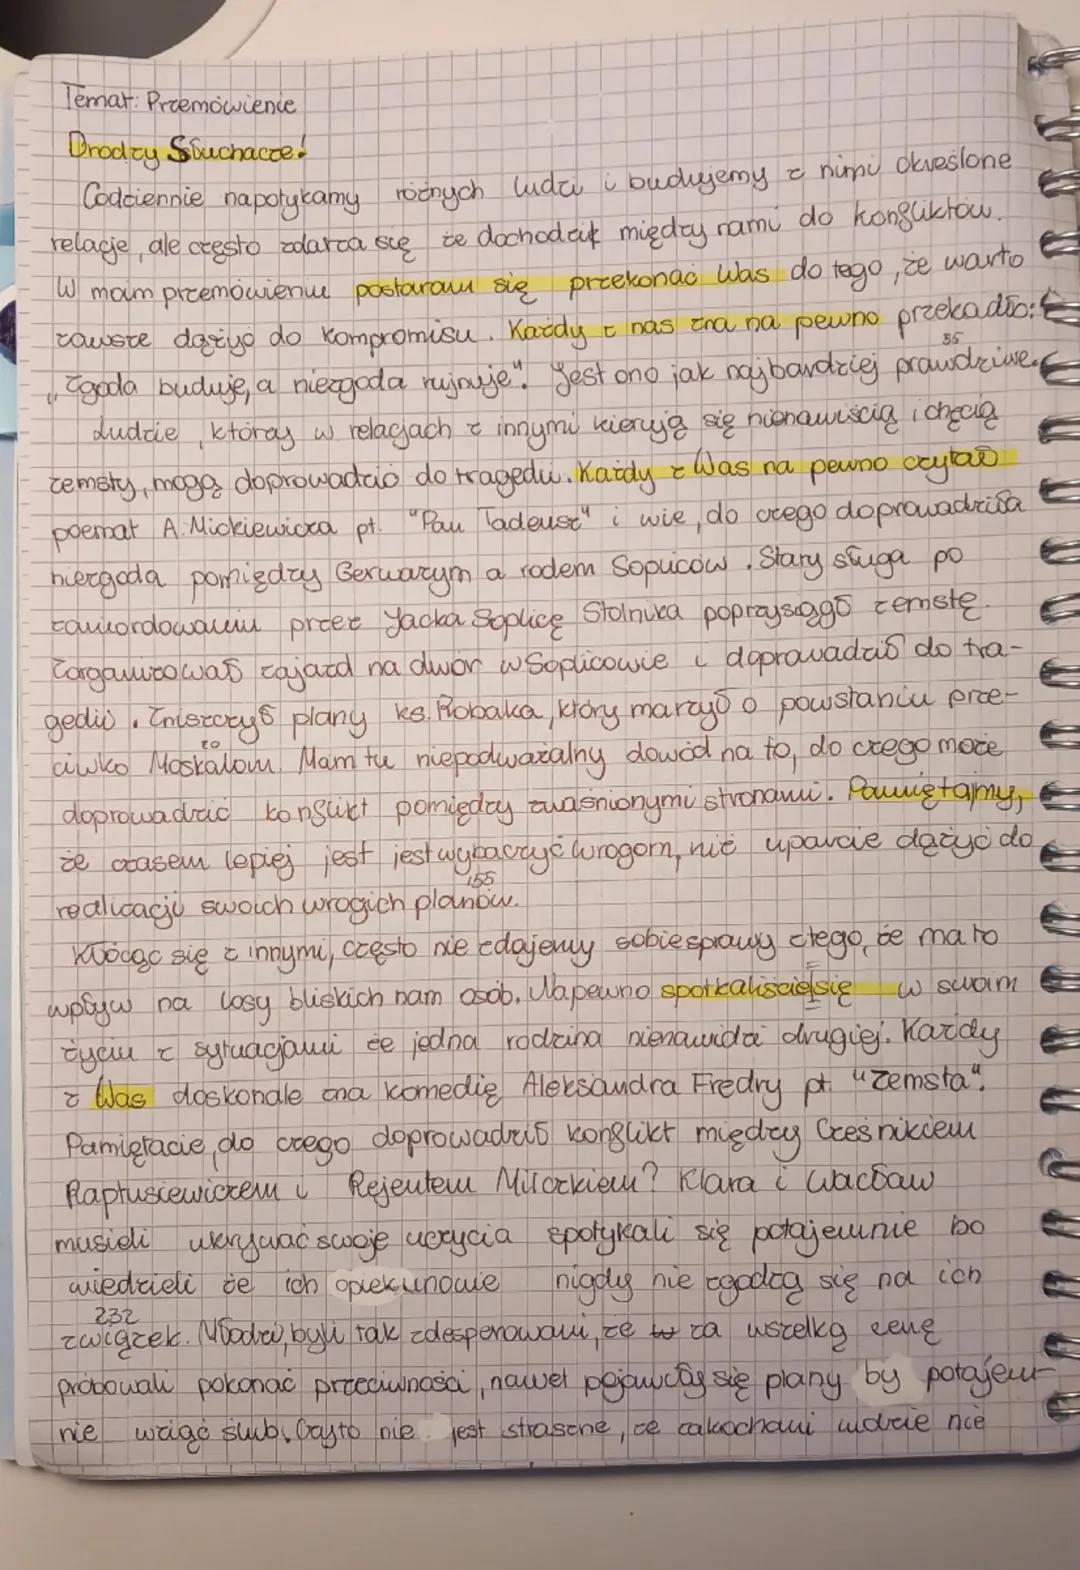 Temat: Przemówienie
Drodzy Słuchacze!
Codziennie napotykamy różnych ludzi i budujemy z nimi określone
relacje, ale często zdarza się że dochodzi między nami do konfliktów.
W moim przemówieniu postaram się przekonać Was do tego, że warto
zawsze dążyć do kompromisu. Każdy z nas zna na pewno przekadło:
"Zgoda buduje, a niezgoda rujnuje". Jest ono jak najbardziej prawdziwe.
35
Ludzie, którzy w relacjach z innymi kierują się nienawiścią i chęcią
zemsty, mogą doprowadzić do tragedii. Każdy z Was na pewno czytał
poemat A. Mickiewicza pt. "Pan Tadeusz" i wie, do czego doprowadziła
niezgoda pomiędzy Gerwazym a rodem Sopliców. Stary sługa po
zamordowaniu przez Jacka Soplicę Stolnika poprzysiągł zemstę.
Zorganizował zajazd na dwór w Soplicowie i doprowadził do tra-
gedii. Zniszczył plany ks. Robaka, który marzył o powstaniu prze-
ciwko Moskalom. Mam tu niepodważalny dowód na to, do czego może
doprowadzić konflikt pomiędzy zwaśnionymi stronami. Pamiętajmy,
że czasem lepiej jest jest wybaczyć wrogom, niż uparcie dążyć do
155
realizacji swoich wrogich planów.
Kłócąc się z innymi, często nie zdajemy sobie sprawy z tego, że ma to
wpływ na losy bliskich nam osób. Na pewno spotkaliście się w swoim
życiu z sytuacjami że jedna rodzina nienawidzi drugiej. Każdy
z Was doskonale zna komedię Aleksandra Fredry pt. "Zemsta".
Pamiętacie, do czego doprowadził konflikt między Cześnikiem
Raptusiewiczem i Rejentem Milczkiem? Klara i Wacław
musieli ukrywać swoje uczycia spotykali się potajemnie bo
wiedzieli że ich opiekunowie nigdy nie zgodzą się na ich
232
związek. Młodzi, byli tak zdesperowani, że za wszelką cenę
próbowali pokonać przeciwności, nawet pojawiały się plany by potajem-
nie wziąć ślub. Czyto nie jest straszne, że zakochani ludzie nie